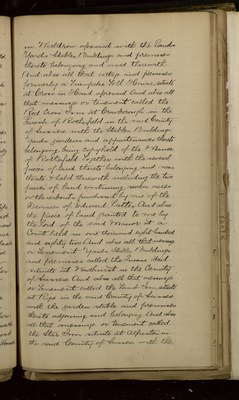 in Waldron aforesaid with the Yards
Yards Stables Buildings and premises
thereto belonging and used therewith
And also all that cottage and premises
formerly a Turnpike Toll House situate
at Cross in Hand aforesaid And also all
that messuage or tenement called the
Red Cross Inn at Crowborough in the
Parish of Rotherfield in the said County
of Sussex with the Stables Buildings
Yards gardens and appurtenances thereto
belonging being copyhold of the Manor
of Rotherfield Together with the several
pieces of land thereto belonging and now
therewith including the two
pieces of land containing seven acres
or thereabouts purchased by me of the
of Edward Catts And also
the piece of land granted to me by
the Lord of the said Manor at a
Court held in one thousand eight hundred
and eighty two And also all that messuage
or Tenement Yards Stables Buildings
and premises called the Queens Head
situate at in the County
of Sussex And also all that messuage
or Tenement called the Inn situate
at Ripe in the said County of Sussex
with the garden stable and premises
thereto adjoining and belonging And also
all that messuage or tenement called
the Star Inn situate at Alfriston in
the said County of Sussex with the